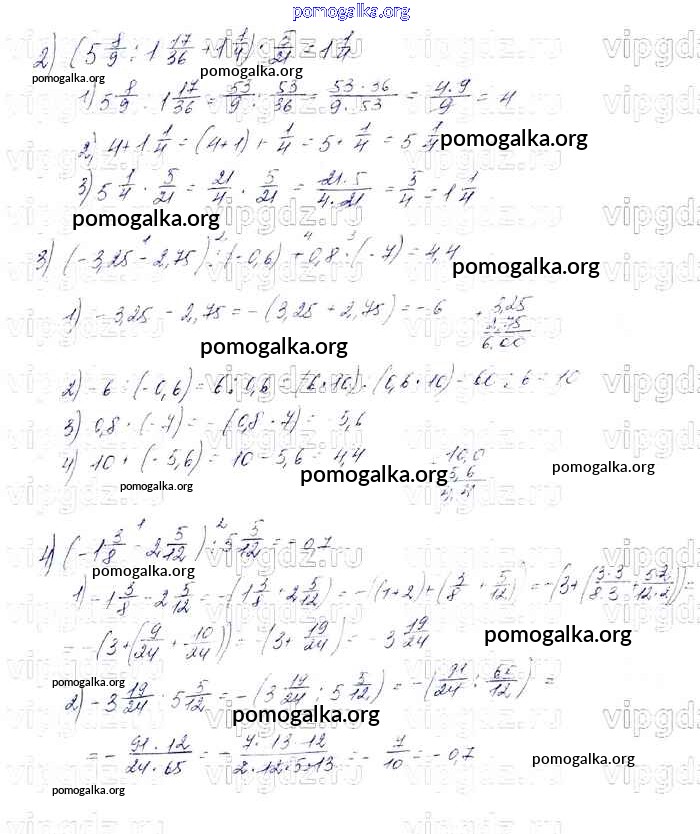 pomogalka.org
2) (5 8/9 : 1 17/36 + 1 1/4) · 5/21 = 1 1/4
pomogalka.org pomogalka.org
1) 5 8/9 : 1 17/36 = 53/9 : 53/36 = 53·36/9·53 = 4·9/9 = 4
2) 4+1 1/4 = (4+1) + 1/4 = 5 + 1/4 = 5 1/4 pomogalka.org
3) 5 1/4 · 5/21 = 21/4 · 5/21 = 21·5/4·21 = 5/4 = 1 1/4
pomogalka.org
3) (-3,25 - 2,75) : (-0,6) + 0,8 · (-7) = 4,4 pomogalka.org
1) -3,25 - 2,75 = -(3,25 + 2,75) = -6
3,25
2,75
6,00
pomogalka.org
2) -6 : (-0,6) = 6 : 0,6 = (6·10) : (0,6·10) = 60 : 6 = 10
3) 0,8 · (-7) = -(0,8 · 7) = -5,6
4) 10 + (-5,6) = 10 - 5,6 = 4,4
10,0
5,6
4,4
pomogalka.org pomogalka.org
pomogalka.org
4) (-1 3/8 - 2 5/12) : 5 5/12 = -0,7
pomogalka.org
1) -1 3/8 - 2 5/12 = -(1 3/8 + 2 5/12) = -((1+2) + (3/8 + 5/12)) = -(3+(3·3/8·3 + 5·2/12·2)) =
= -(3+(9/24 + 10/24)) = -(3+ 19/24) = -3 19/24 pomogalka.org
pomogalka.org
2) -3 19/24 : 5 5/12 = -(3 19/24 : 5 5/12) = -(91/24 : 65/12) =
pomogalka.org
= - 91·12/24·65 = - 7·13·12/2·12·5·13 = - 7/10 = -0,7 pomogalka.org
pomogalka.org
vipgdz.ru